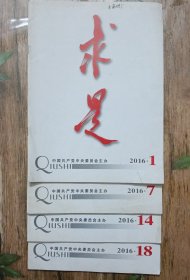 求是
中国共产党中央委员会主办 2016·1
QIUSHI
中国共产党中央委员会主办 2016·7
QIUSHI
中国共产党中央委员会主办 2016·14
QIUSHI
中国共产党中央委员会主办 2016·18
QIUSHI